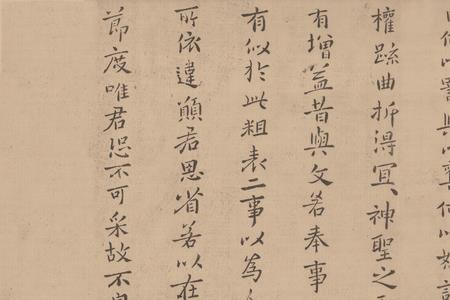 權疏曲折得冝、神聖之
有增益昔與文若奉事
有似於此粗表二事以為
所依違願君思省若以在
節度唯君恐不可采故不